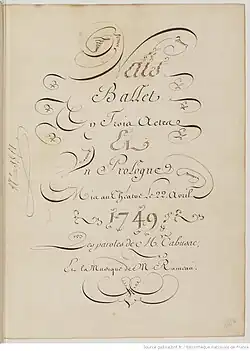 Naïs
Ballet
En Trois Actes
Et
Un Prologue
Mis au Theatre Le 22. Avril
1749
Les paroles de M. Cahusac,
Et la Musique de M. Rameau.
Source gallica.bnf.fr / Bibliothèque nationale de France